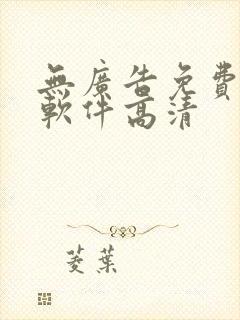 無廣告免費
軟件高清
菱葉